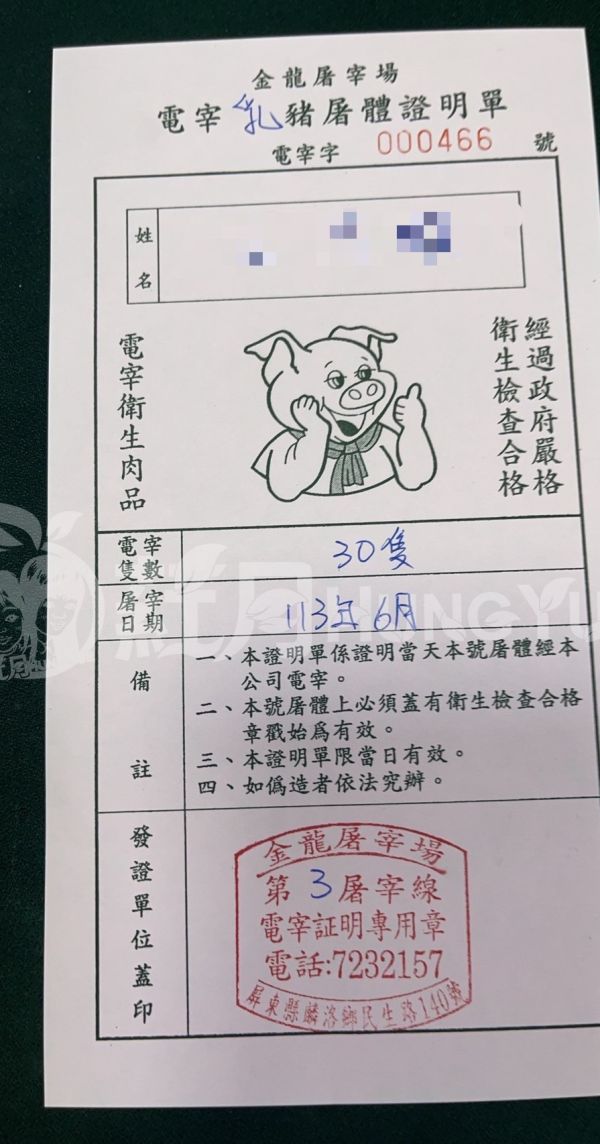 金龍屠宰場
電宰乳豬屠體證明單
電宰字 000466 號
姓名
經過政府嚴格
衛生檢查合格
電宰衛生肉品
電宰隻數 30隻
屠宰日期 113年6月
備註
一、本證明單係證明當天本號屠體經本
公司電宰。
二、本號屠體上必須蓋有衛生檢查合格
章戳始為有效。
三、本證明單限當日有效。
四、如偽造者依法究辦。
發證單位蓋印
金龍屠宰場
第3屠宰線
電宰証明專用章
電話:7232157
屏東縣麟洛鄉民生路140號
HUNGYU